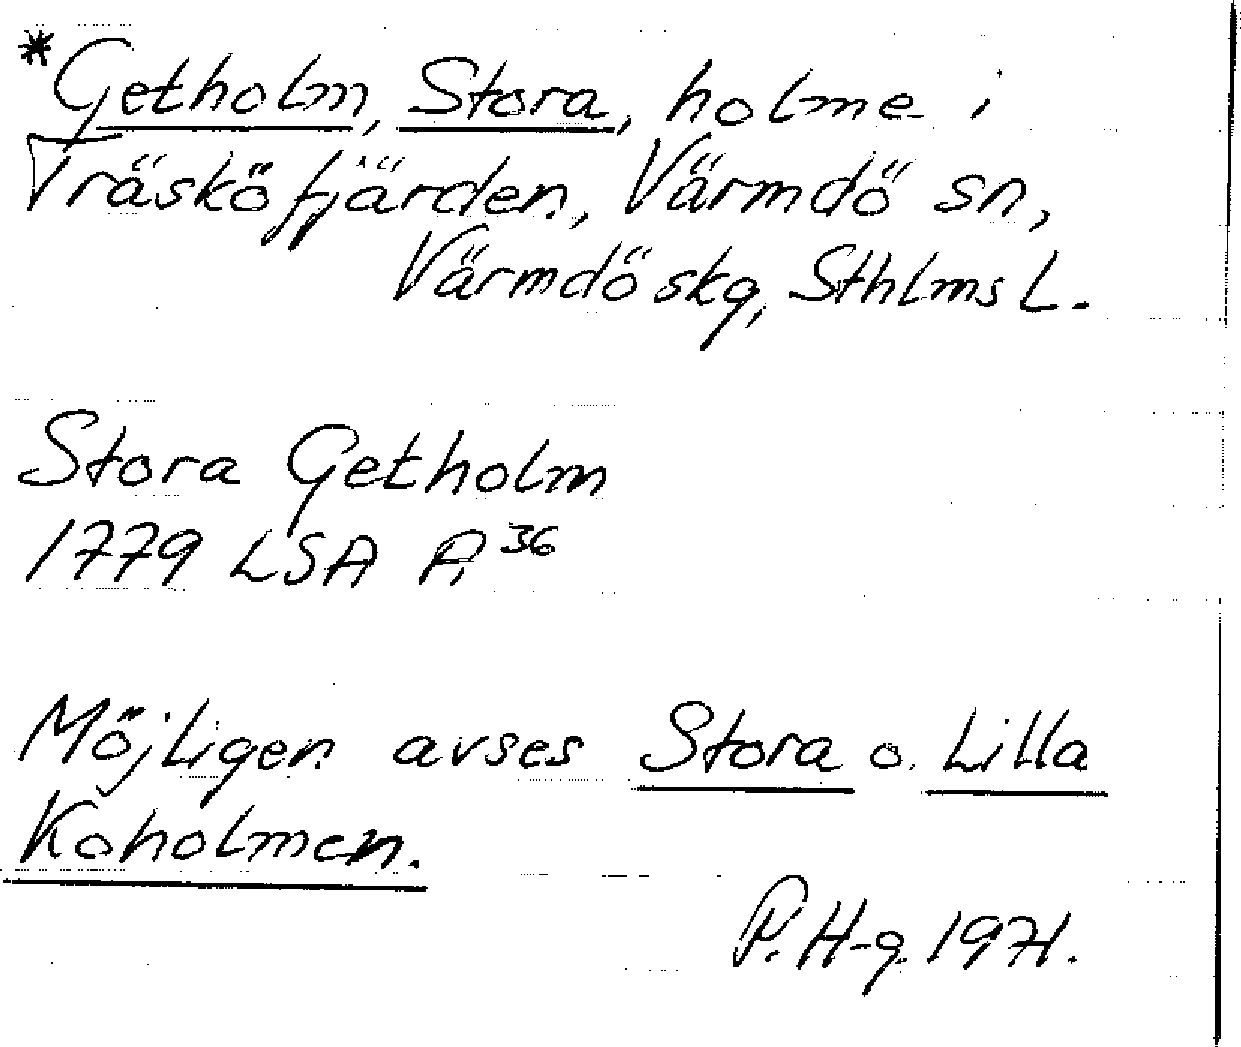 *Getholm, Stora, holme i
Träsköfjärden, Värmdö sn,
Värmdö skg, Sthlms L.
Stora Getholm
1779 LSA A 36
Möjligen avses Stora o. Lilla
Koholmen.
P. H-g. 1971.